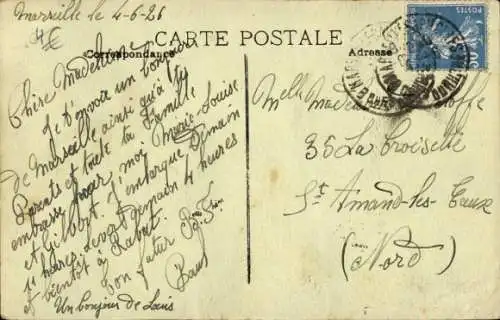 Marseille le 4-6-26
4€
CARTE POSTALE
Correspondance
Adresse
Chère Madeleine
Je t'envoie un bonjour
de Marseille ainsi qu'à ty
Parents et toute ta Famille
embrasse pour moi Marie-Louise
et J'embarque demain
heures devant demain 4 heures
et bientôt à Rabat
Ton futur
Paul
Un bonjour de Louis
Melle Madeleine
35 La Croisette
St Amand-les-Eaux
(Nord)